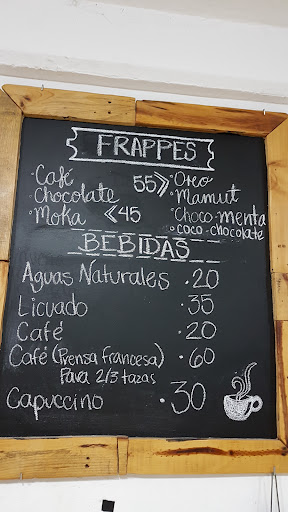 FRAPPES
· Café 55» · Oreo
· Chocolate · Mamut
· Moka «45 · Choco-menta
· coco-chocolate
BEBIDAS
Aguas Naturales · 20
Licuado · 35
Café · 20
Café (Prensa francesa) · 60
Para 2/3 tazas
Capuccino · 30